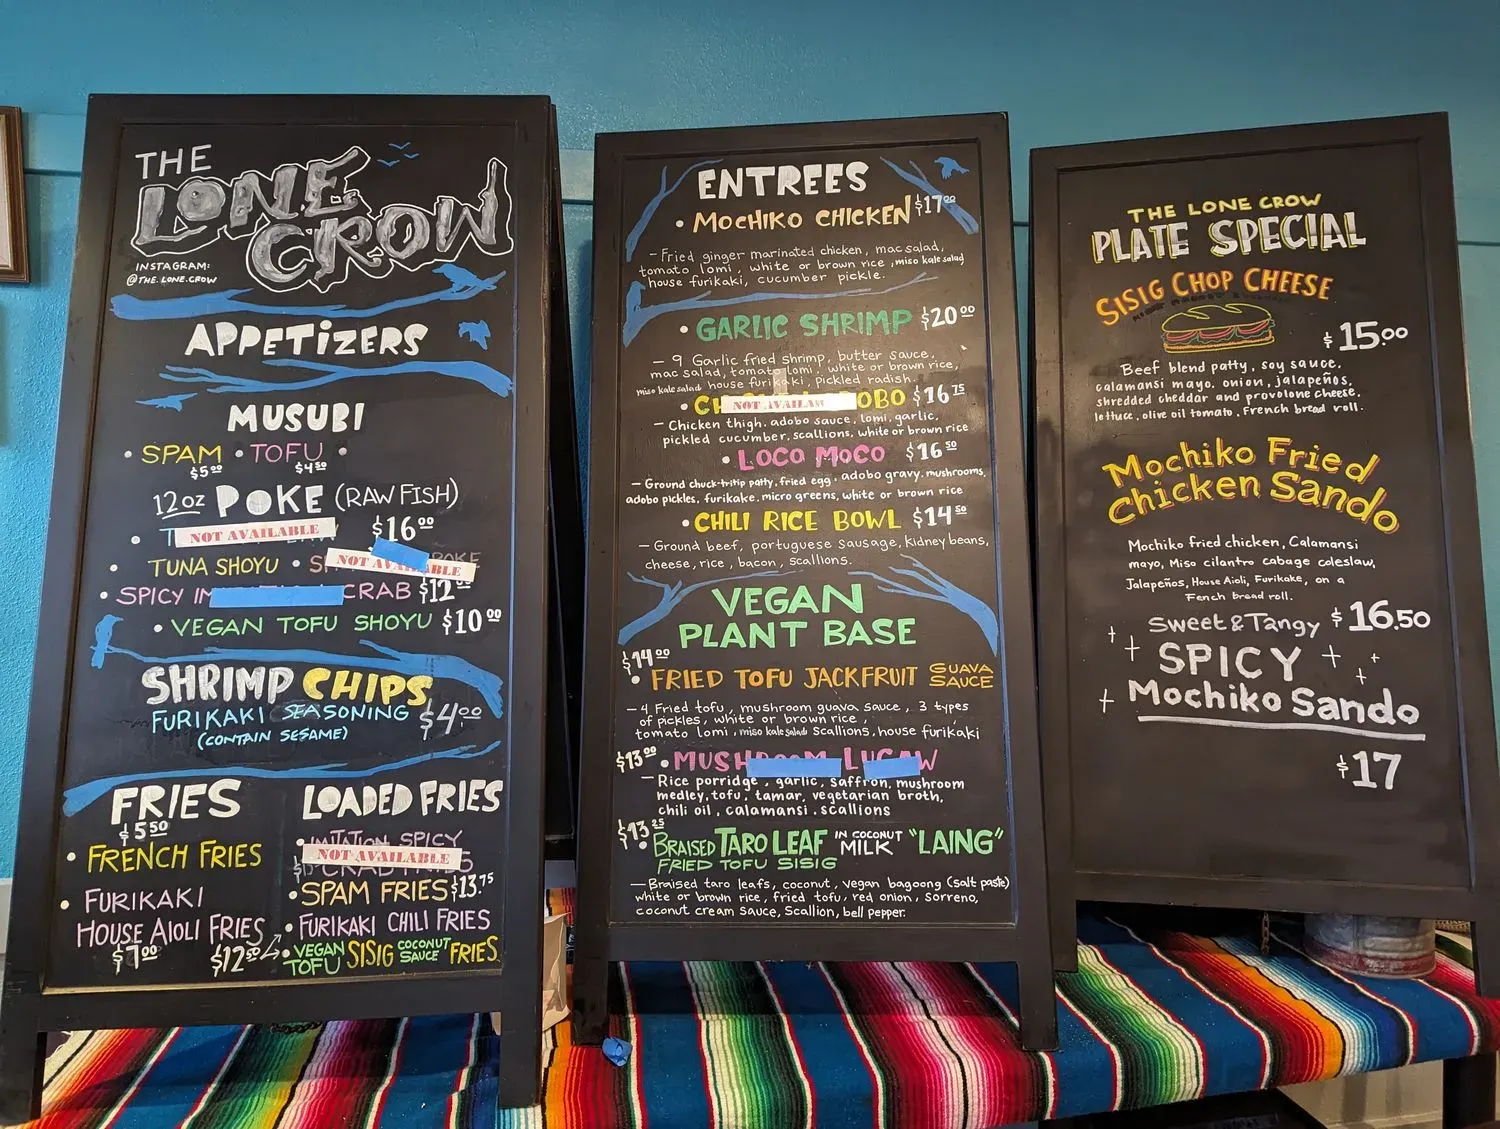 THE
LONE
CROW
INSTAGRAM:
@THE.LONE.CROW
APPETiZERS
MUSUBI
• SPAM • TOFU •
$5.00 $4.50
12oz POKE (RAW FISH)
• NOT AVAILABLE $16.00
• TUNA SHOYU • NOT AVAILABLE POKE
• SPICY CRAB $12
• VEGAN TOFU SHOYU $10.00
SHRIMP CHIPS
FURIKAKI SEASONING $4.00
(CONTAIN SESAME)
FRIES
$5.50
• FRENCH FRIES
• FURIKAKI
HOUSE AIOLI FRIES
$7.00
LOADED FRIES
IMITATION SPICY
NOT AVAILABLE
• SPAM FRIES $13.75
• FURIKAKI CHILI FRIES
$12.50 • VEGAN TOFU SISIG COCONUT SAUCE FRIES
ENTREES
• MOCHIKO CHICKEN $17.00
- Fried ginger marinated chicken, mac salad,
tomato lomi, white or brown rice, miso kale salad
house furikaki, cucumber pickle.
• GARLIC SHRIMP $20.00
- 9 Garlic fried shrimp, butter sauce,
mac salad, tomato lomi, white or brown rice,
miso kale salad house furikaki, pickled radish.
• NOT AVAILAB OBO $16.75
- Chicken thigh. adobo sauce, lomi, garlic,
pickled cucumber, scallions, white or brown rice
• LOCO MOCO $16.50
- Ground chuck-tritip patty, fried egg, adobo gravy, mushrooms,
adobo pickles, furikake, micro greens, white or brown rice
• CHILI RICE BOWL $14.50
- Ground beef, portuguese sausage, kidney beans,
cheese, rice, bacon, scallions.
VEGAN
PLANT BASE
$14.00
• FRIED TOFU JACKFRUIT GUAVA SAUCE
- 4 Fried tofu, mushroom guava sauce, 3 types
of pickles, white or brown rice,
tomato lomi, miso kale salad scallions, house furikaki
$13.00 • MUSHROOM LUGAW
- Rice porridge, garlic, saffron, mushroom
medley, tofu, tamar, vegetarian broth,
chili oil, calamansi, scallions
$13.25
• BRAISED TARO LEAF IN COCONUT MILK "LAING"
FRIED TOFU SISIG
- Braised taro leafs, coconut, vegan bagoong (salt paste)
white or brown rice, fried tofu, red onion, Sorreno,
coconut cream Sauce, Scallion, bell pepper.
THE LONE CROW
PLATE SPECIAL
SISIG CHOP CHEESE
$15.00
Beef blend patty, soy sauce,
calamansi mayo. onion, jalapeños,
shredded cheddar and provolone cheese,
lettuce, olive oil tomato, French bread roll.
Mochiko Fried
Chicken Sando
Mochiko fried chicken, Calamansi
mayo, Miso cilantro cabage coleslaw,
Jalapeños, House Aioli, Furikake, on a
Fench bread roll.
Sweet & Tangy $16.50
SPICY
Mochiko Sando
$17